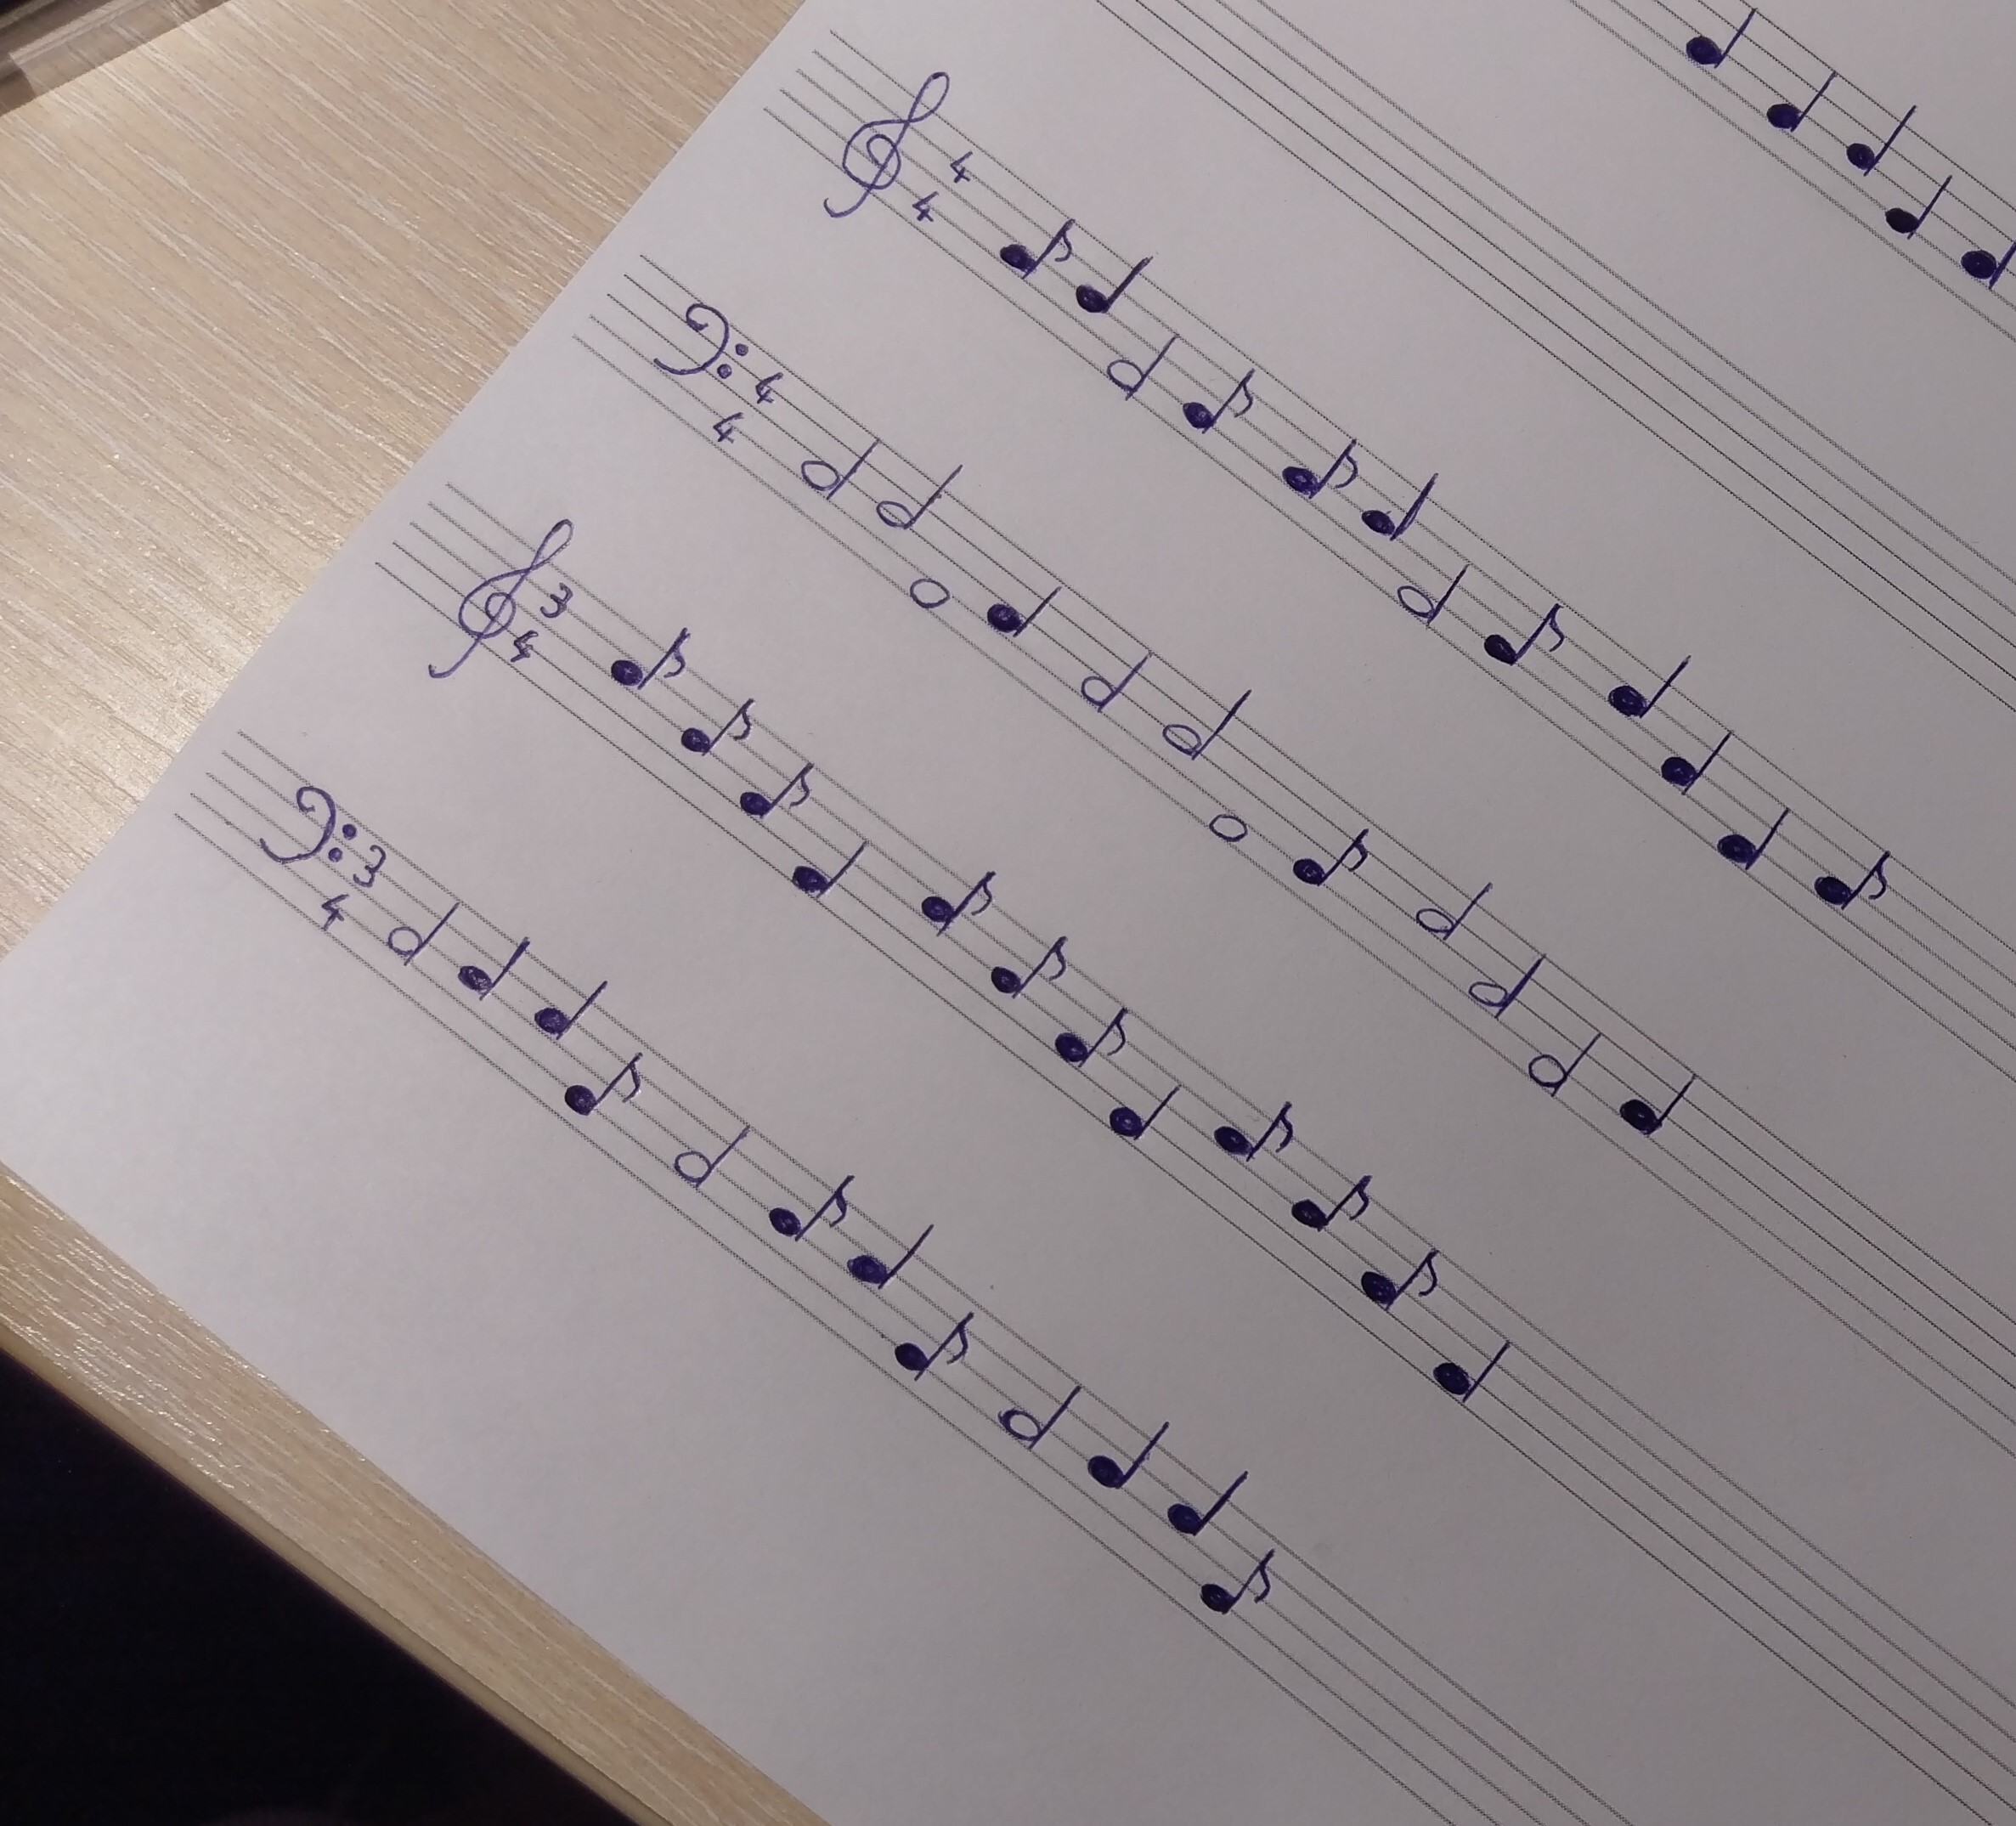 4
4
4
4
3
4
3
4